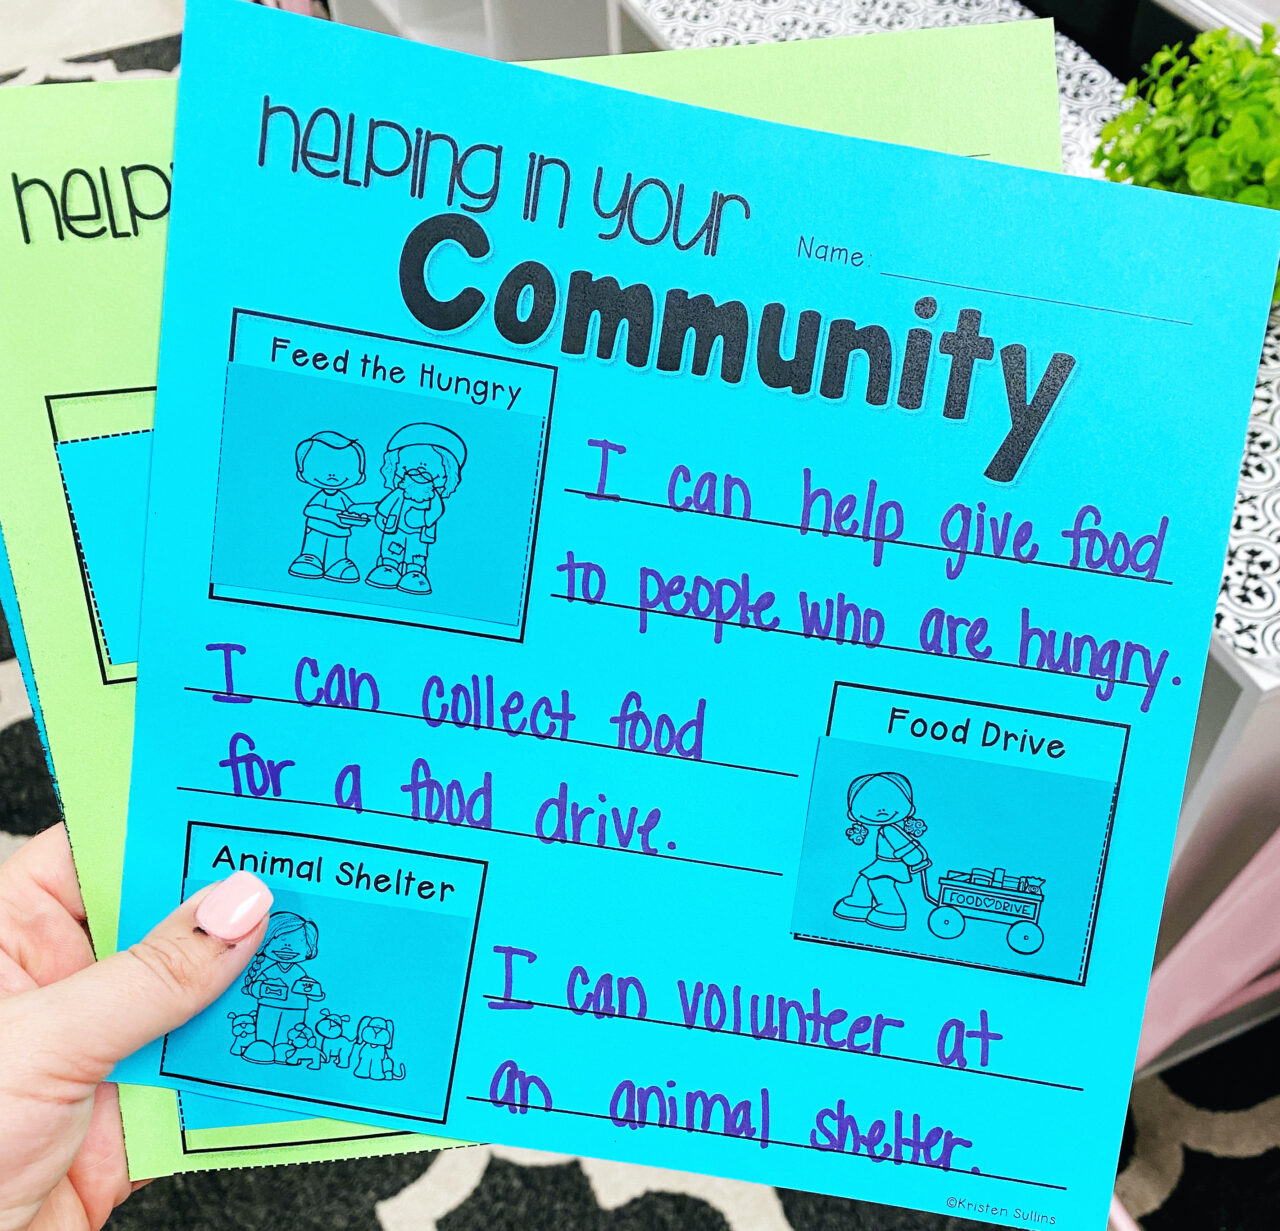 Helping in your
Community
Name:
Feed the Hungry
I can help give food
to people who are hungry.
I can collect food
for a food drive.
Food Drive
FOOD♡DRIVE
Animal Shelter
I can volunteer at
an animal shelter.
©Kristen Sullins
Help